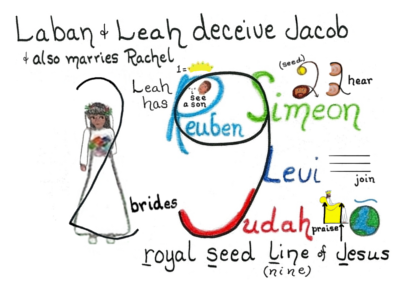 Laban & Leah deceive Jacob
& also marries Rachel
Leah has
1=
see a son
Reuben
(seed)
22
hear
Simeon
Levi
join
2
brides
9
Judah
praise
royal seed Line of Jesus
(nine)